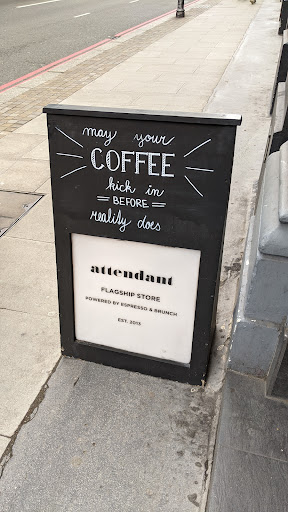 may your
COFFEE
kick in
= BEFORE =
reality does
attendant
FLAGSHIP STORE
POWERED BY ESPRESSO & BRUNCH
EST. 2013